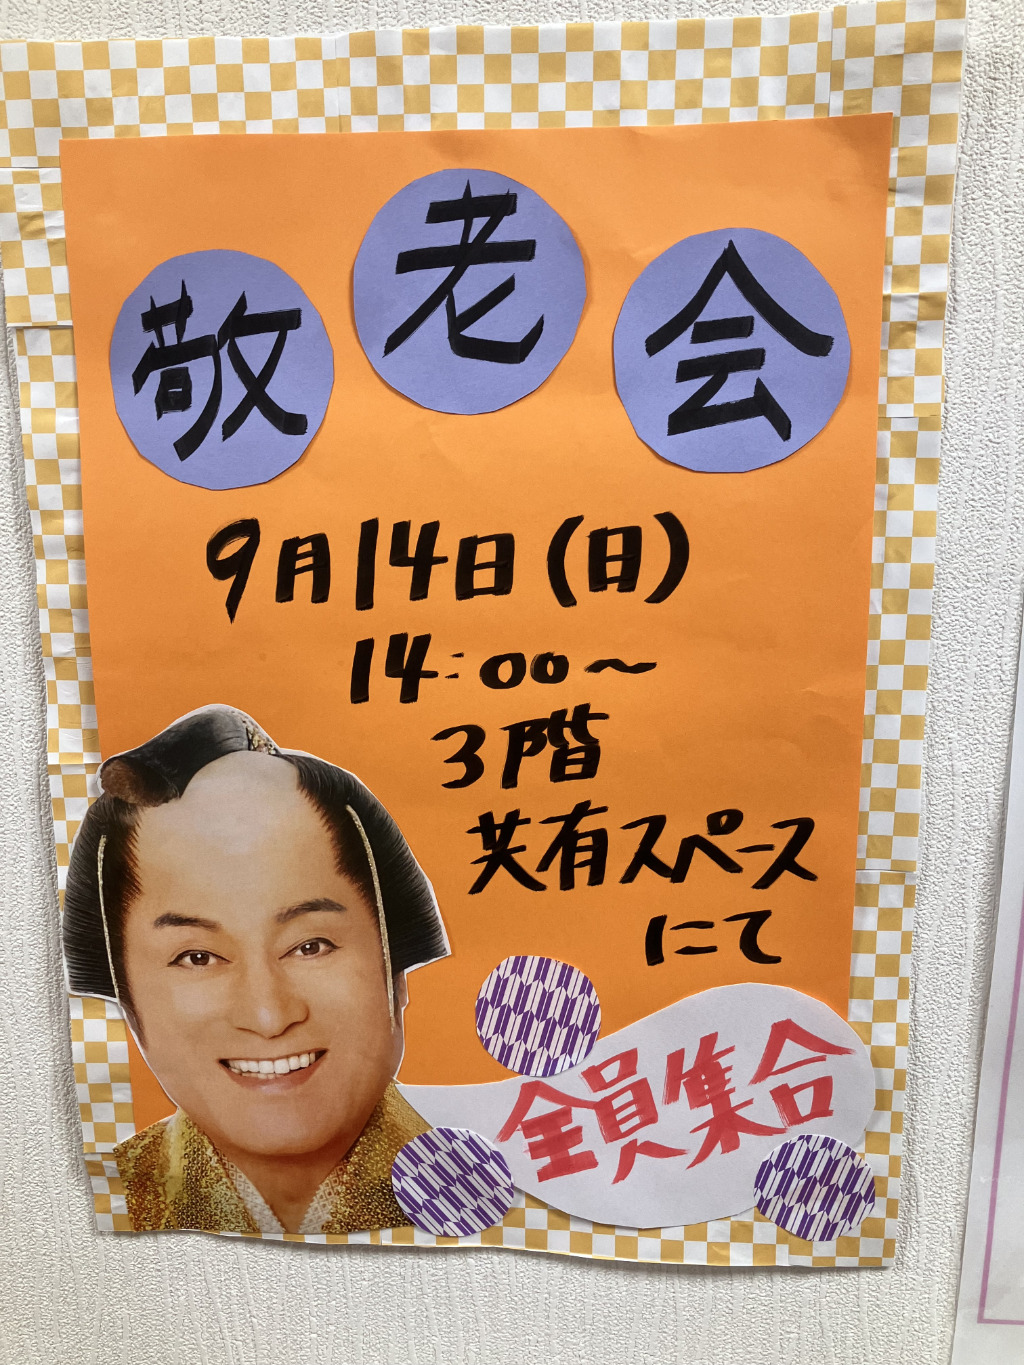 敬老会
9月14日(日)
14:00～
3階
共有スペース
にて
全員集合